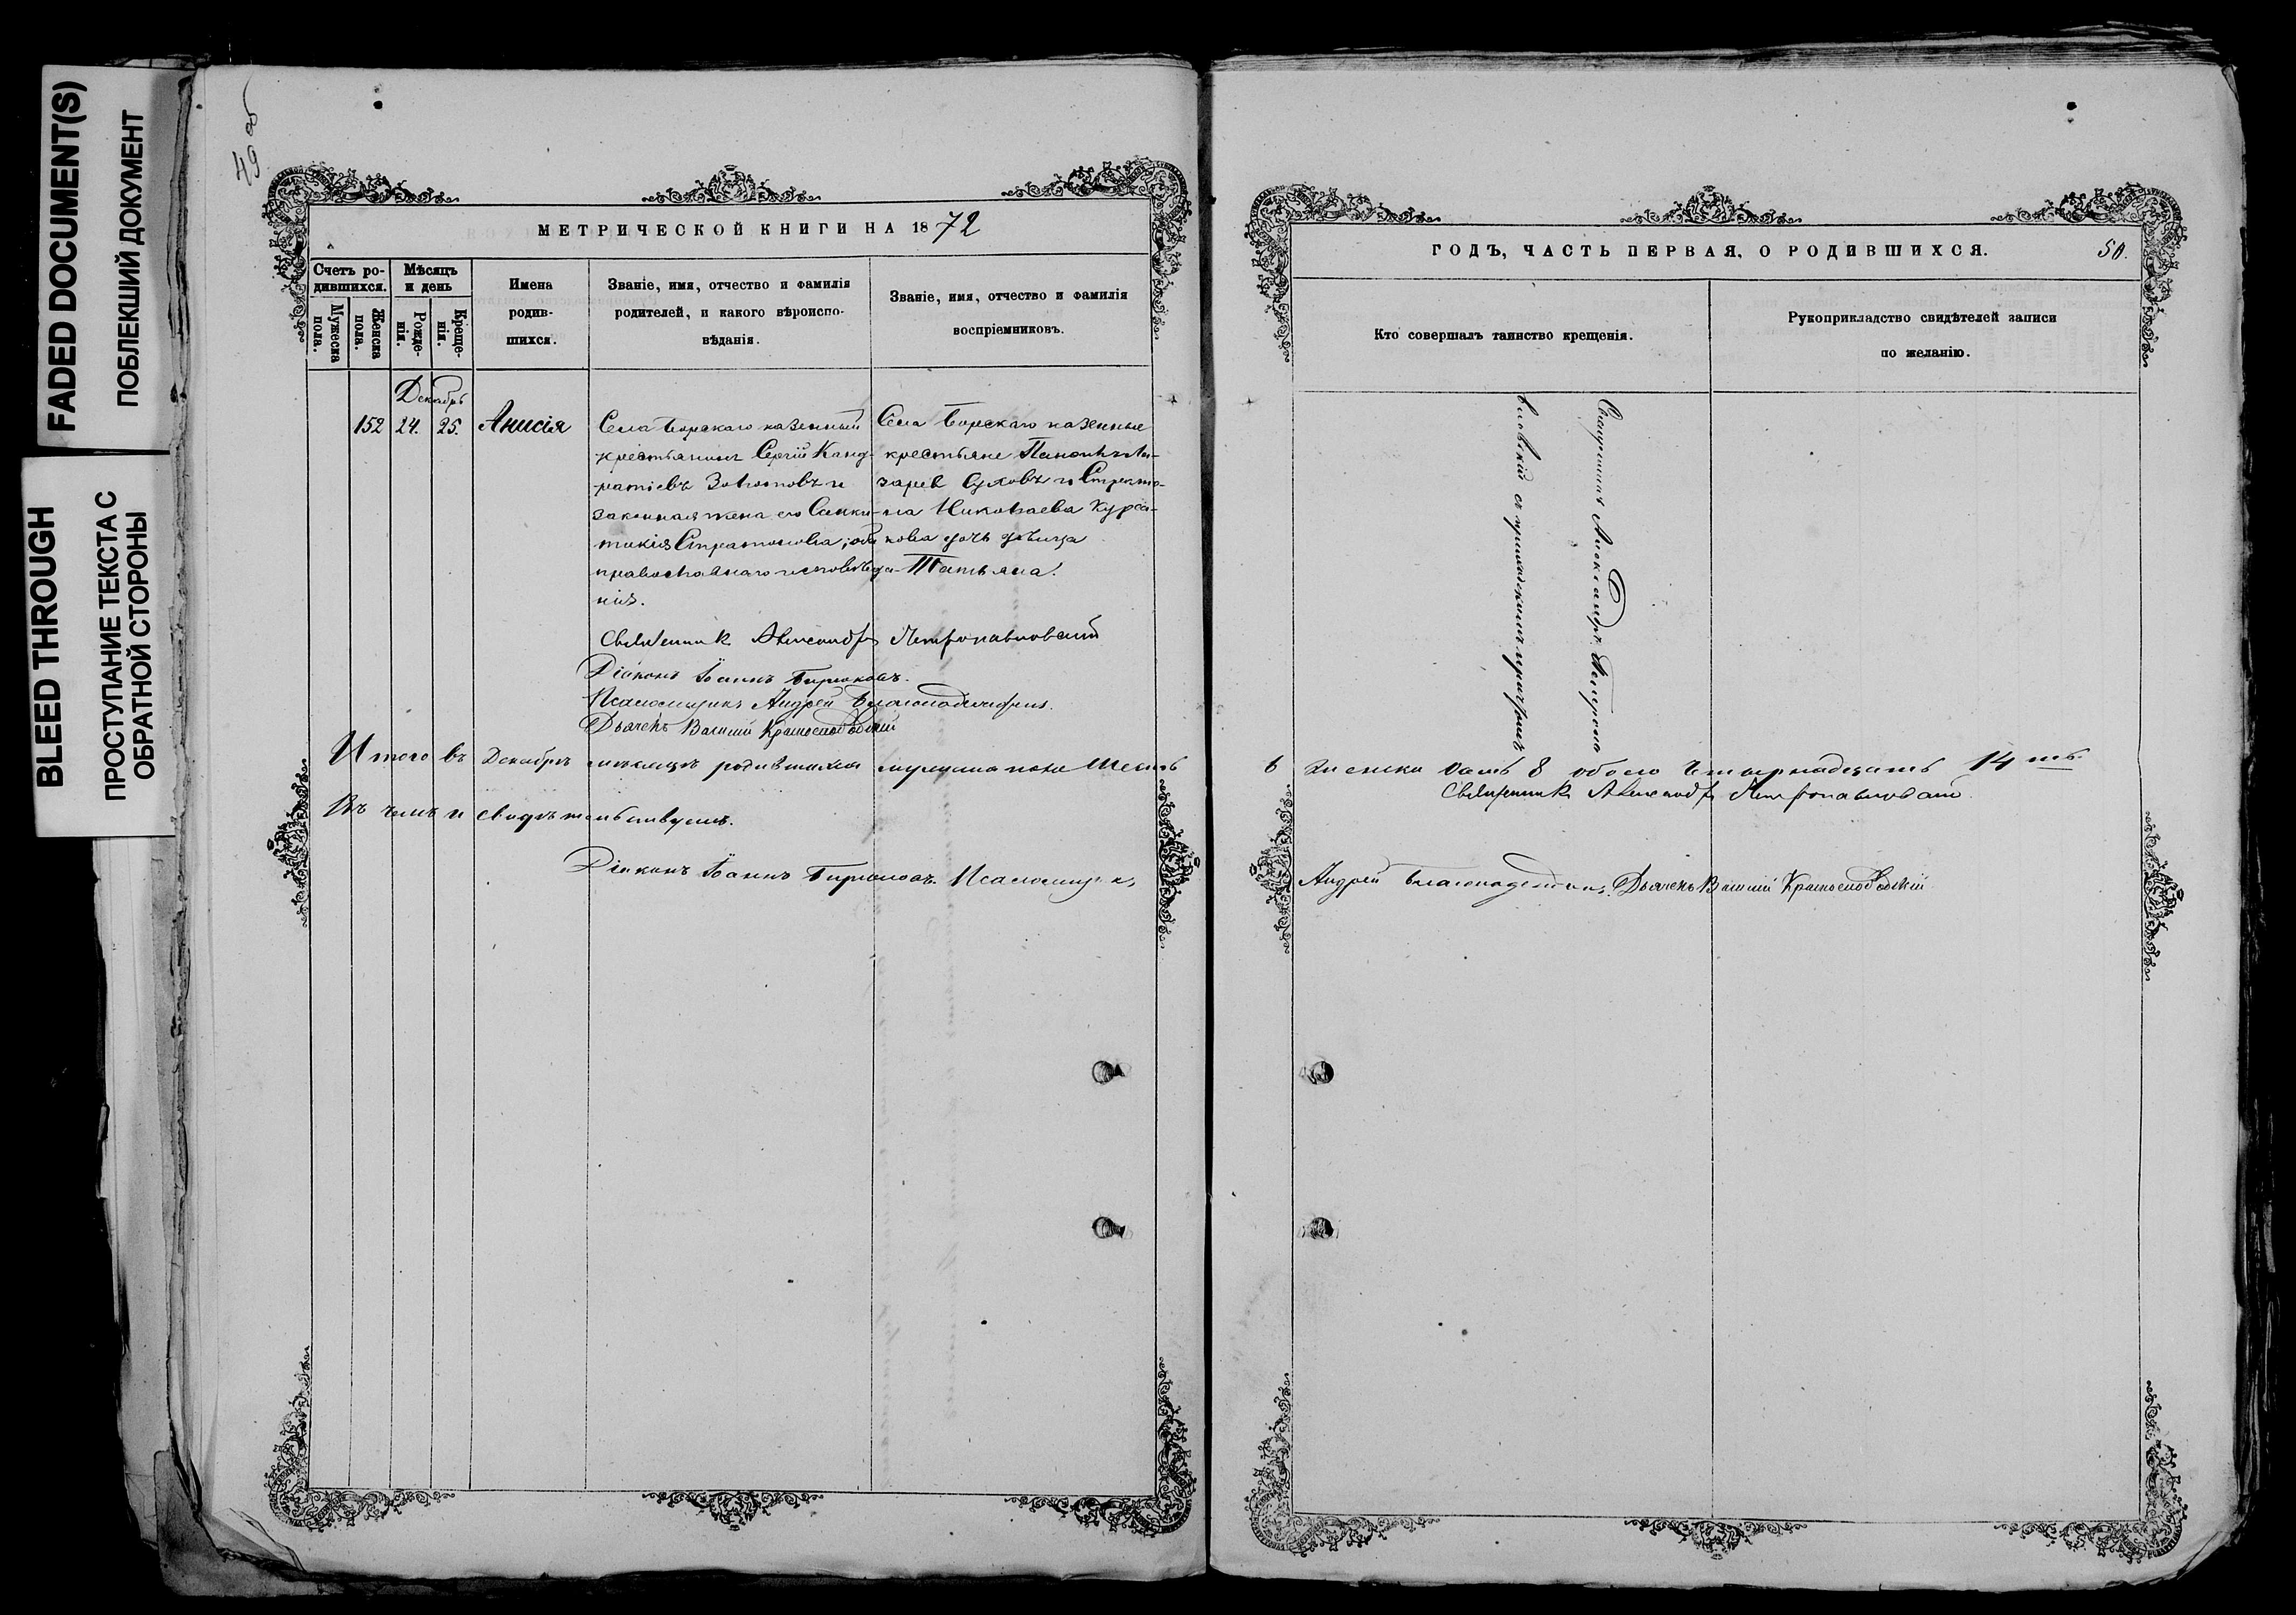 FADED DOCUMENT(S)
ПОБЛЕКШИЙ ДОКУМЕНТ
BLEED THROUGH
ПРОСТУПАНИЕ ТЕКСТА С
ОБРАТНОЙ СТОРОНЫ
49 об
МЕТРИЧЕСКОЙ КНИГИ НА 1872
Счетъ ро-
дившихся.
Мужеска
пола.
Женска
пола.
Мѣсяцъ
и день
Рожде-
нія.
Креще-
нія.
Имена
родив-
шихся.
Званіе, имя, отчество и фамилія
родителей, и какого вѣроиспо-
вѣданія.
Званіе, имя, отчество и фамилія
воспріемниковъ.
Декабрь
152 24. 25. Анисія
Села Борскаго казенный
крестьянинъ Сергій Конд-
ратіевъ Золотовъ и
законная жена его Синкли-
тикія Стратонова, оба
православнаго исповѣда-
нія.
Села Борскаго казенные
крестьяне
зарев Суховъ и
на Николаева Курса-
кова дочь дѣвица
Татьяна.
Священник Александръ Петропавловскій
Діаконъ Іоаннъ Бирюковъ.
Псаломщикъ Андрей Благонадеждинъ.
Дьячекъ Василій Краснослободскій
Итого въ Декабрѣ мѣсяцѣ родившихся мужеска пола шесть
Въ чемъ и свидѣтельствуемъ.
Діаконъ Іоаннъ Бирюковъ. Псаломщикъ
ГОДЪ, ЧАСТЬ ПЕРВАЯ, О РОДИВШИХСЯ.
50.
Кто совершалъ таинство крещенія.
Рукоприкладство свидѣтелей записи
по желанію.
Священникъ Александръ Петропа-
вловскій съ приходскимъ причтомъ
6 женска 8 обоего четырнадцать 14ть
Священник Александръ Петропавловский
Андрей Благонадеждинъ. Дьячекъ Василій Краснослободскій